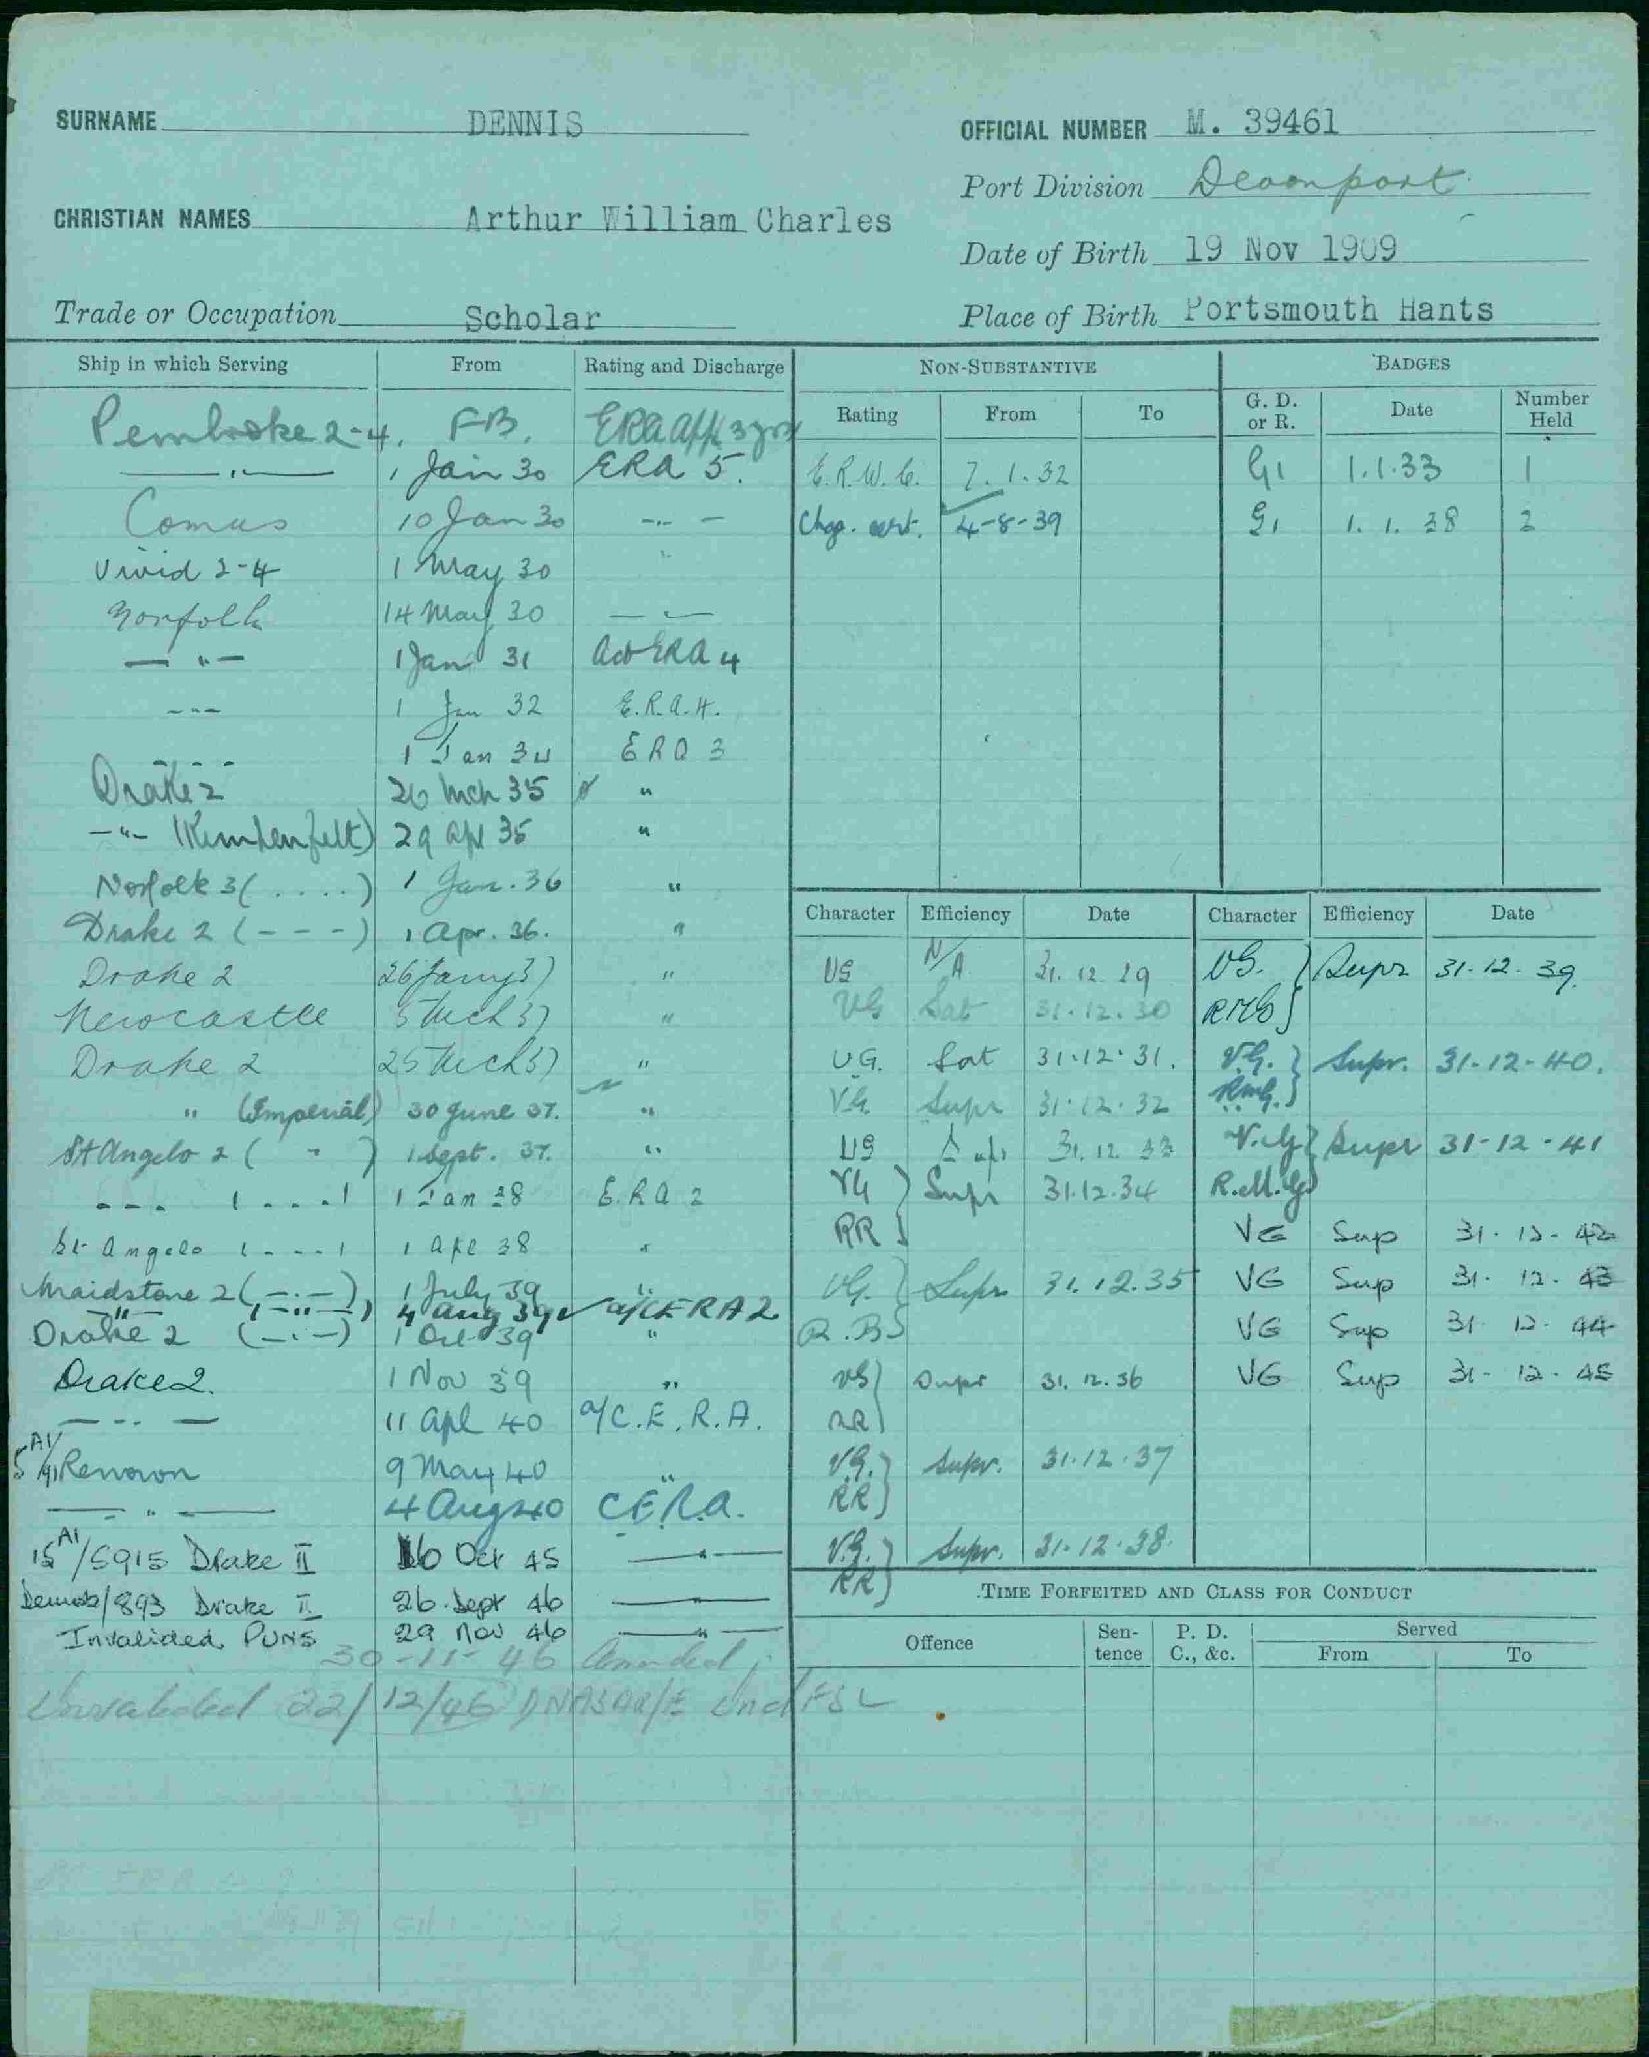 SURNAME DENNIS
OFFICIAL NUMBER M. 39461
Port Division Devonport
CHRISTIAN NAMES Arthur William Charles
Date of Birth 19 Nov 1909
Trade or Occupation Scholar
Place of Birth Portsmouth Hants
Ship in which Serving From Rating and Discharge
Pembroke 2-4. FB. ERA App 3 yrs
—"— 1 Jan 30 ERA 5.
Comus 10 Jan 30 -"-
Vivid 2-4 1 May 30 "
Norfolk 14 May 30 —"—
—"— 1 Jan 31 Act ERA 4
--- 1 Jan 32 E.R.A.4.
---- 1 Jan 34 ERA 3
Drake 2 26 Mch 35 "
-"- (Kempenfelt) 29 Apl 35 "
Norfolk 3 (....) 1 Jan. 36 "
Drake 2 (---) 1 Apr. 36. "
Drake 2 26 Jany 37 "
Newcastle 5 Mch 37 "
Drake 2 25 Mch 37 "
" (Imperial) 30 June 37. "
St Angelo 2 ( " ) 1 Sept. 37. "
--- (....) 1 Jan 38 E.R.A 2
St Angelo (----) 1 Apl 38 "
Maidstone 2 (-.-) 1 July 39 "
" (-"-) 4 Aug 39 a/CERA2
Drake 2 (-.-) 1 Oct 39 "
Drake 2. 1 Nov 39 "
— -- — 11 Apl 40 a/C.E.R.A.
Renown 9 May 40 "
—"— 4 Aug 40 C.E.R.A.
15 A1/5915 Drake II 16 Oct 45 —"—
Demob/893 Drake II 26 Sept 46 —"—
Invalided PUNS 29 Nov 46 —"—
30-11-46 Amended
Invalided 22/12/46
NON-SUBSTANTIVE
Rating From To
E.R.W.C. 7.1.32
Chge. cert. 4-8-39
BADGES
G. D. or R. Date Number Held
G1 1.1.33 1
G1 1.1.38 2
Character Efficiency Date
VG N/A 31.12.29
VG Sat 31.12.30
V.G. Sat 31.12.31.
VG. Supr 31.12.32
VG Sup 31.12.33
VG } Supr 31.12.34
RR
VG. } Supr 31.12.35
VG } Supr 31.12.36
RR
V.G. } Supr. 31.12.37
RR
V.G. } Supr. 31.12.38.
RR
Character Efficiency Date
VG. } Supr 31.12.39.
RMG
V.G. } Supr. 31-12-40.
RMG.
V.G } Supr 31-12-41
R.M.G
VG Sup 31-12-42
VG Sup 31-12-43
VG Sup 31-12-44
VG Sup 31-12-45
TIME FORFEITED AND CLASS FOR CONDUCT
Offence Sentence P. D. C., &c. Served
From To